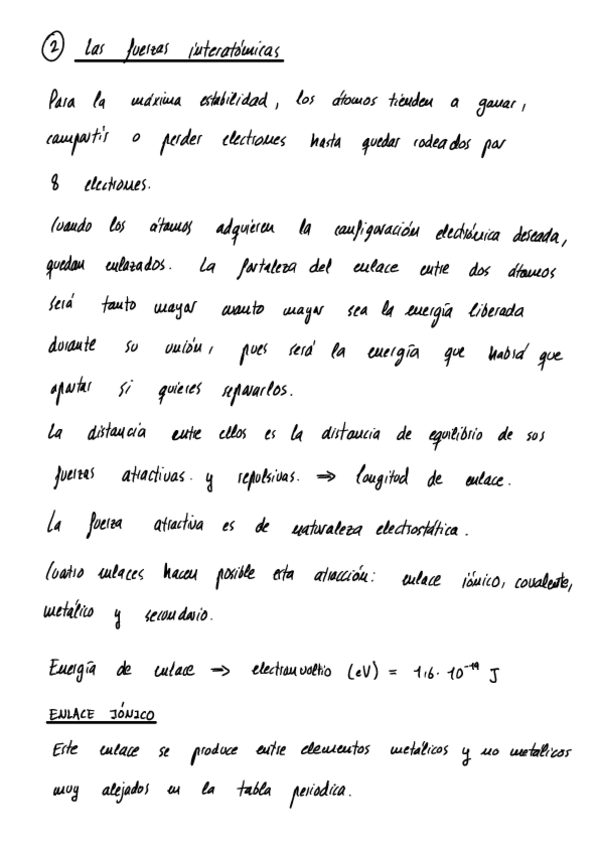 ② Las fuerzas interatómicas
Para la máxima estabilidad, los átomos tienden a ganar,
compartir o perder electrones hasta quedar rodeados por
8 electrones.
Cuando los átomos adquieren la configuración electrónica deseada,
quedan enlazados. La fortaleza del enlace entre dos átomos
será tanto mayor cuanto mayor sea la energía liberada
durante su unión, pues será la energía que habrá que
aportar si quieres separarlos.
La distancia entre ellos es la distancia de equilibrio de sus
fuerzas atractivas y repulsivas. ⇒ longitud de enlace.
La fuerza atractiva es de naturaleza electrostática.
Cuatro enlaces hacen posible esta atracción: enlace iónico, covalente,
metálico y secundario.
Energía de enlace → electronvoltio (eV) = 1,6·10⁻¹⁹ J
ENLACE IÓNICO
Este enlace se produce entre elementos metálicos y no metálicos
muy alejados en la tabla periodica.